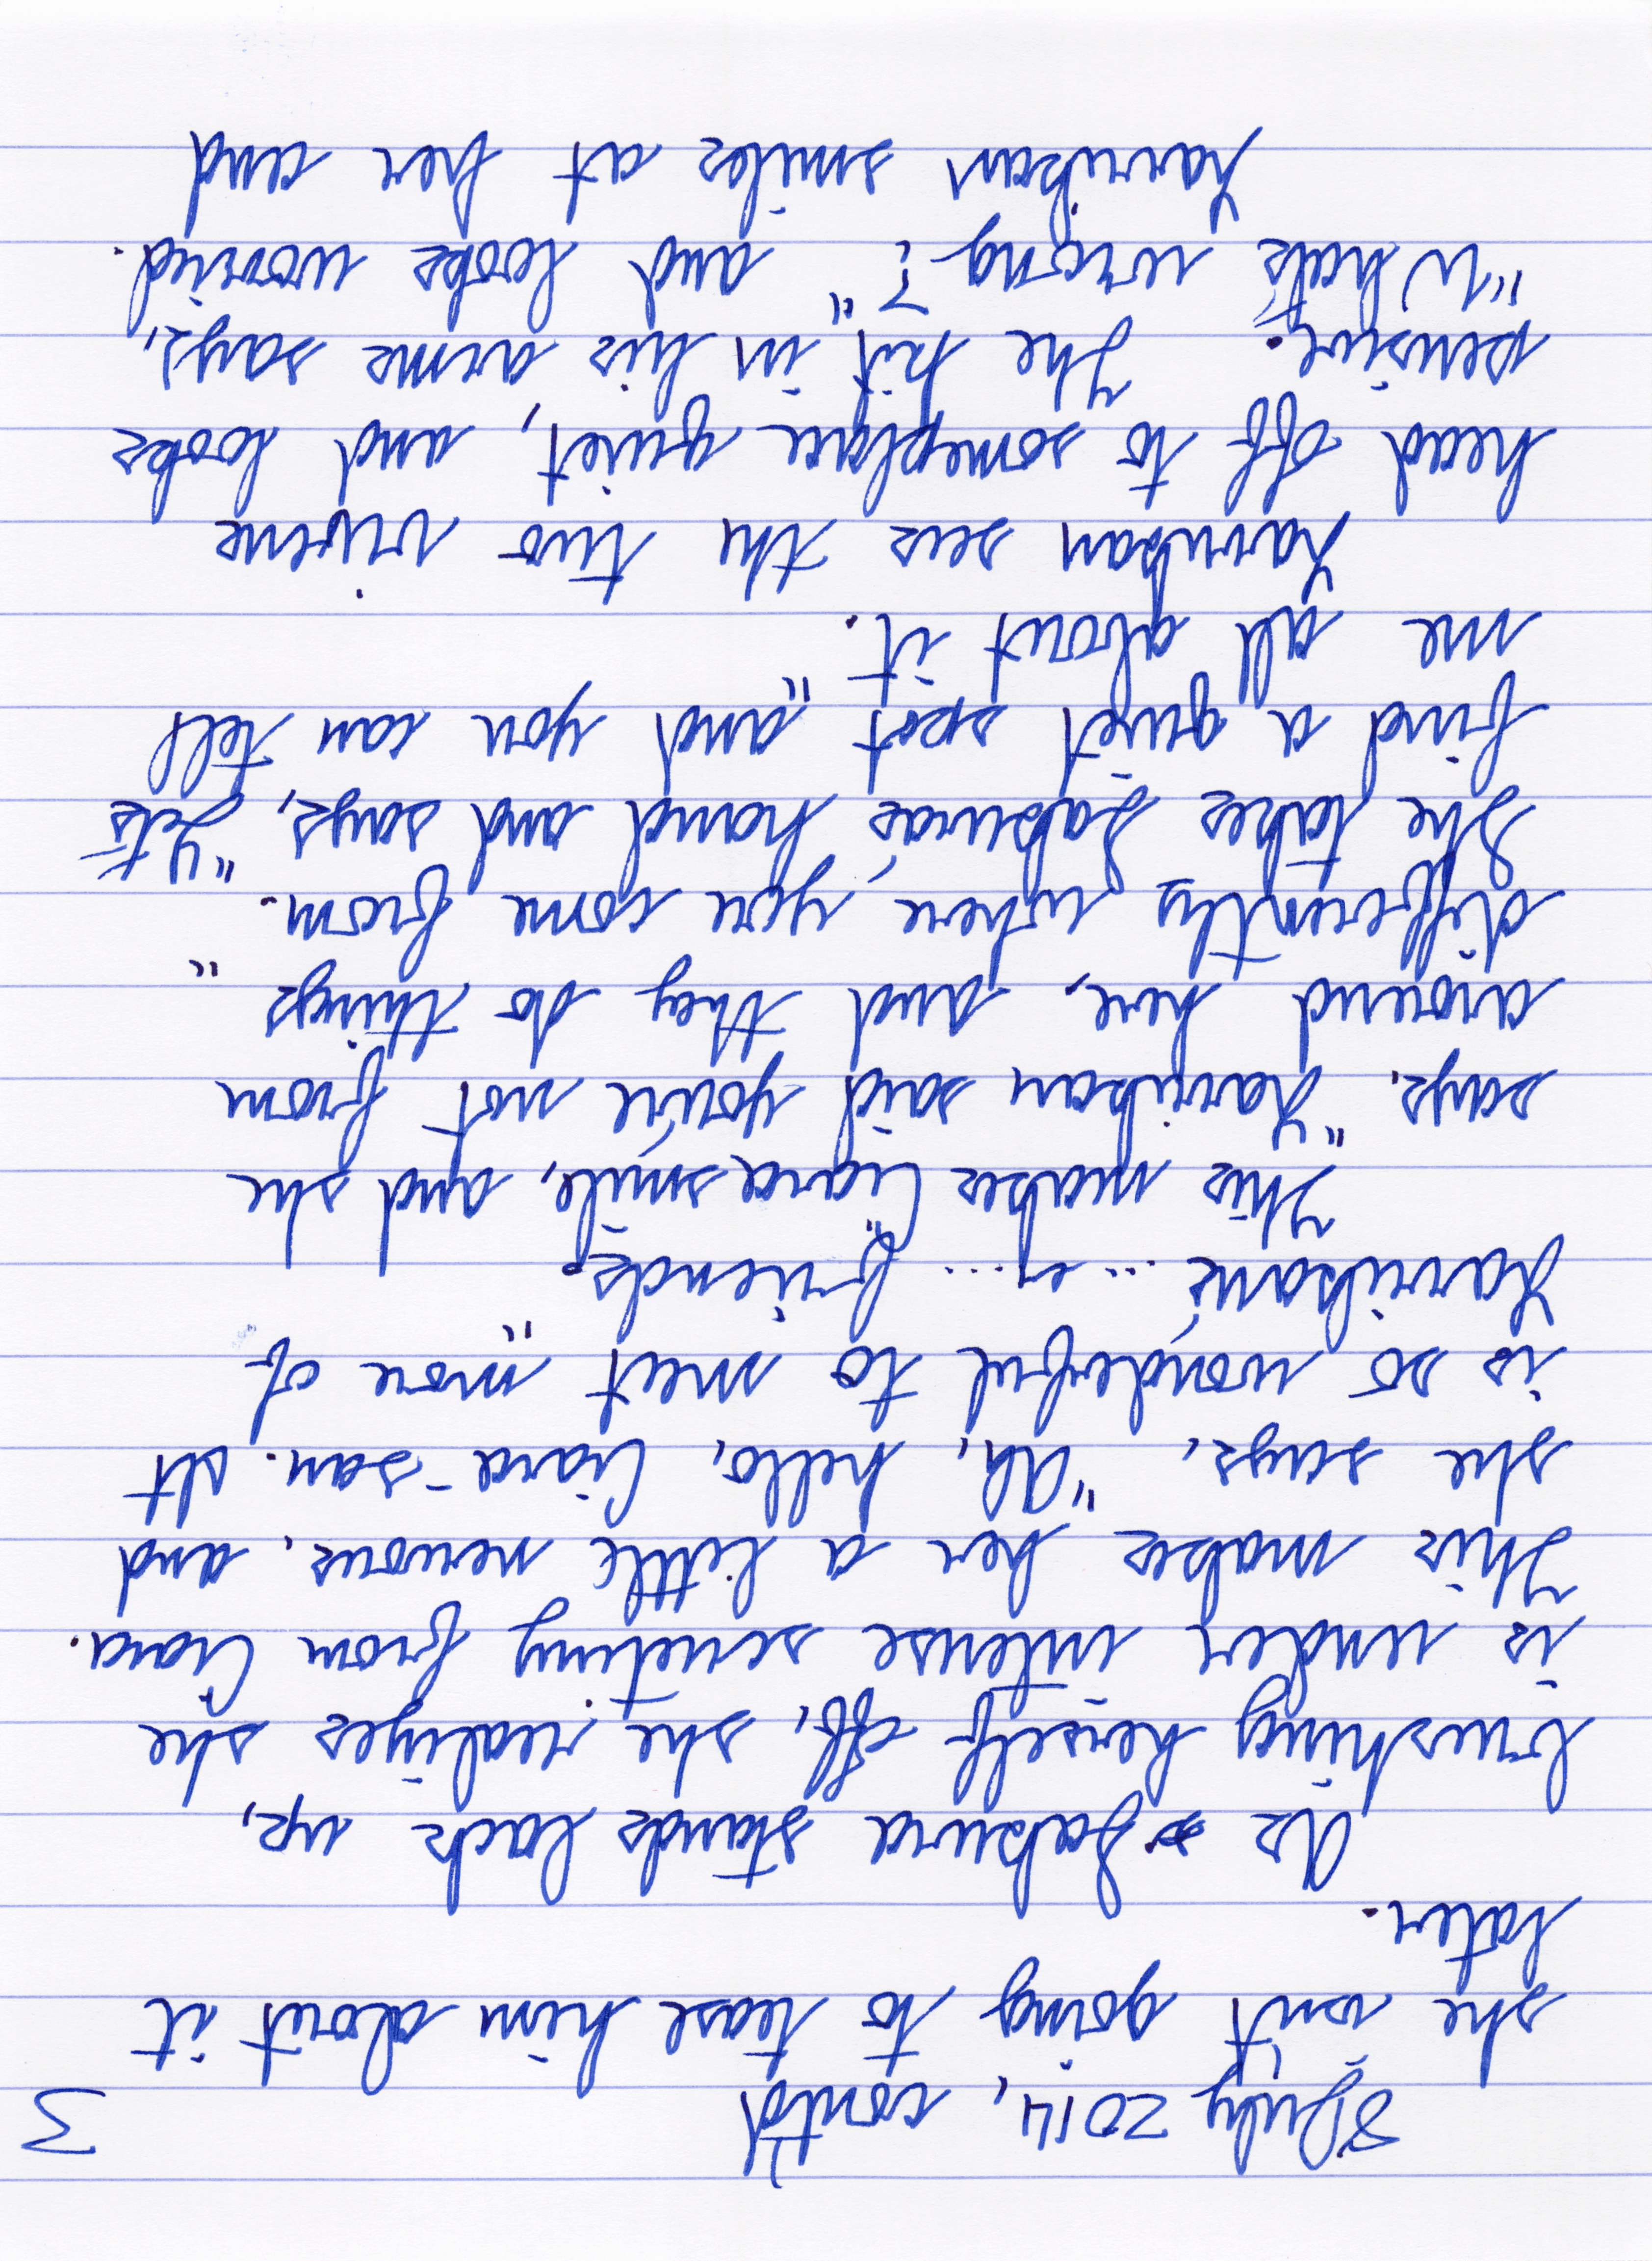 8 July 2014, cont'd 3
she isn't going to tease him about it
later.
As Sakura stands back up,
brushing herself off, she realizes she
is under intense scrutiny from Ciara.
This makes her a little nervous, and
she says, "Ah, hello, Ciara-san. It
is so wonderful to meet more of
Harrikans' ... er ... friends."
This makes Ciara smile, and she
says, "Harrikan said you're not from
around here, and they do things
differently where you come from."
She takes Sakuras' hand and says, "Lets
find a quiet spot and you can tell
me all about it."
Harrikan sees the two vixens
head off to someplace quiet, and looks
pensive. The kit in his arms says,
"Whats' wrong?" and looks worried.
Harrikan smiles at her and